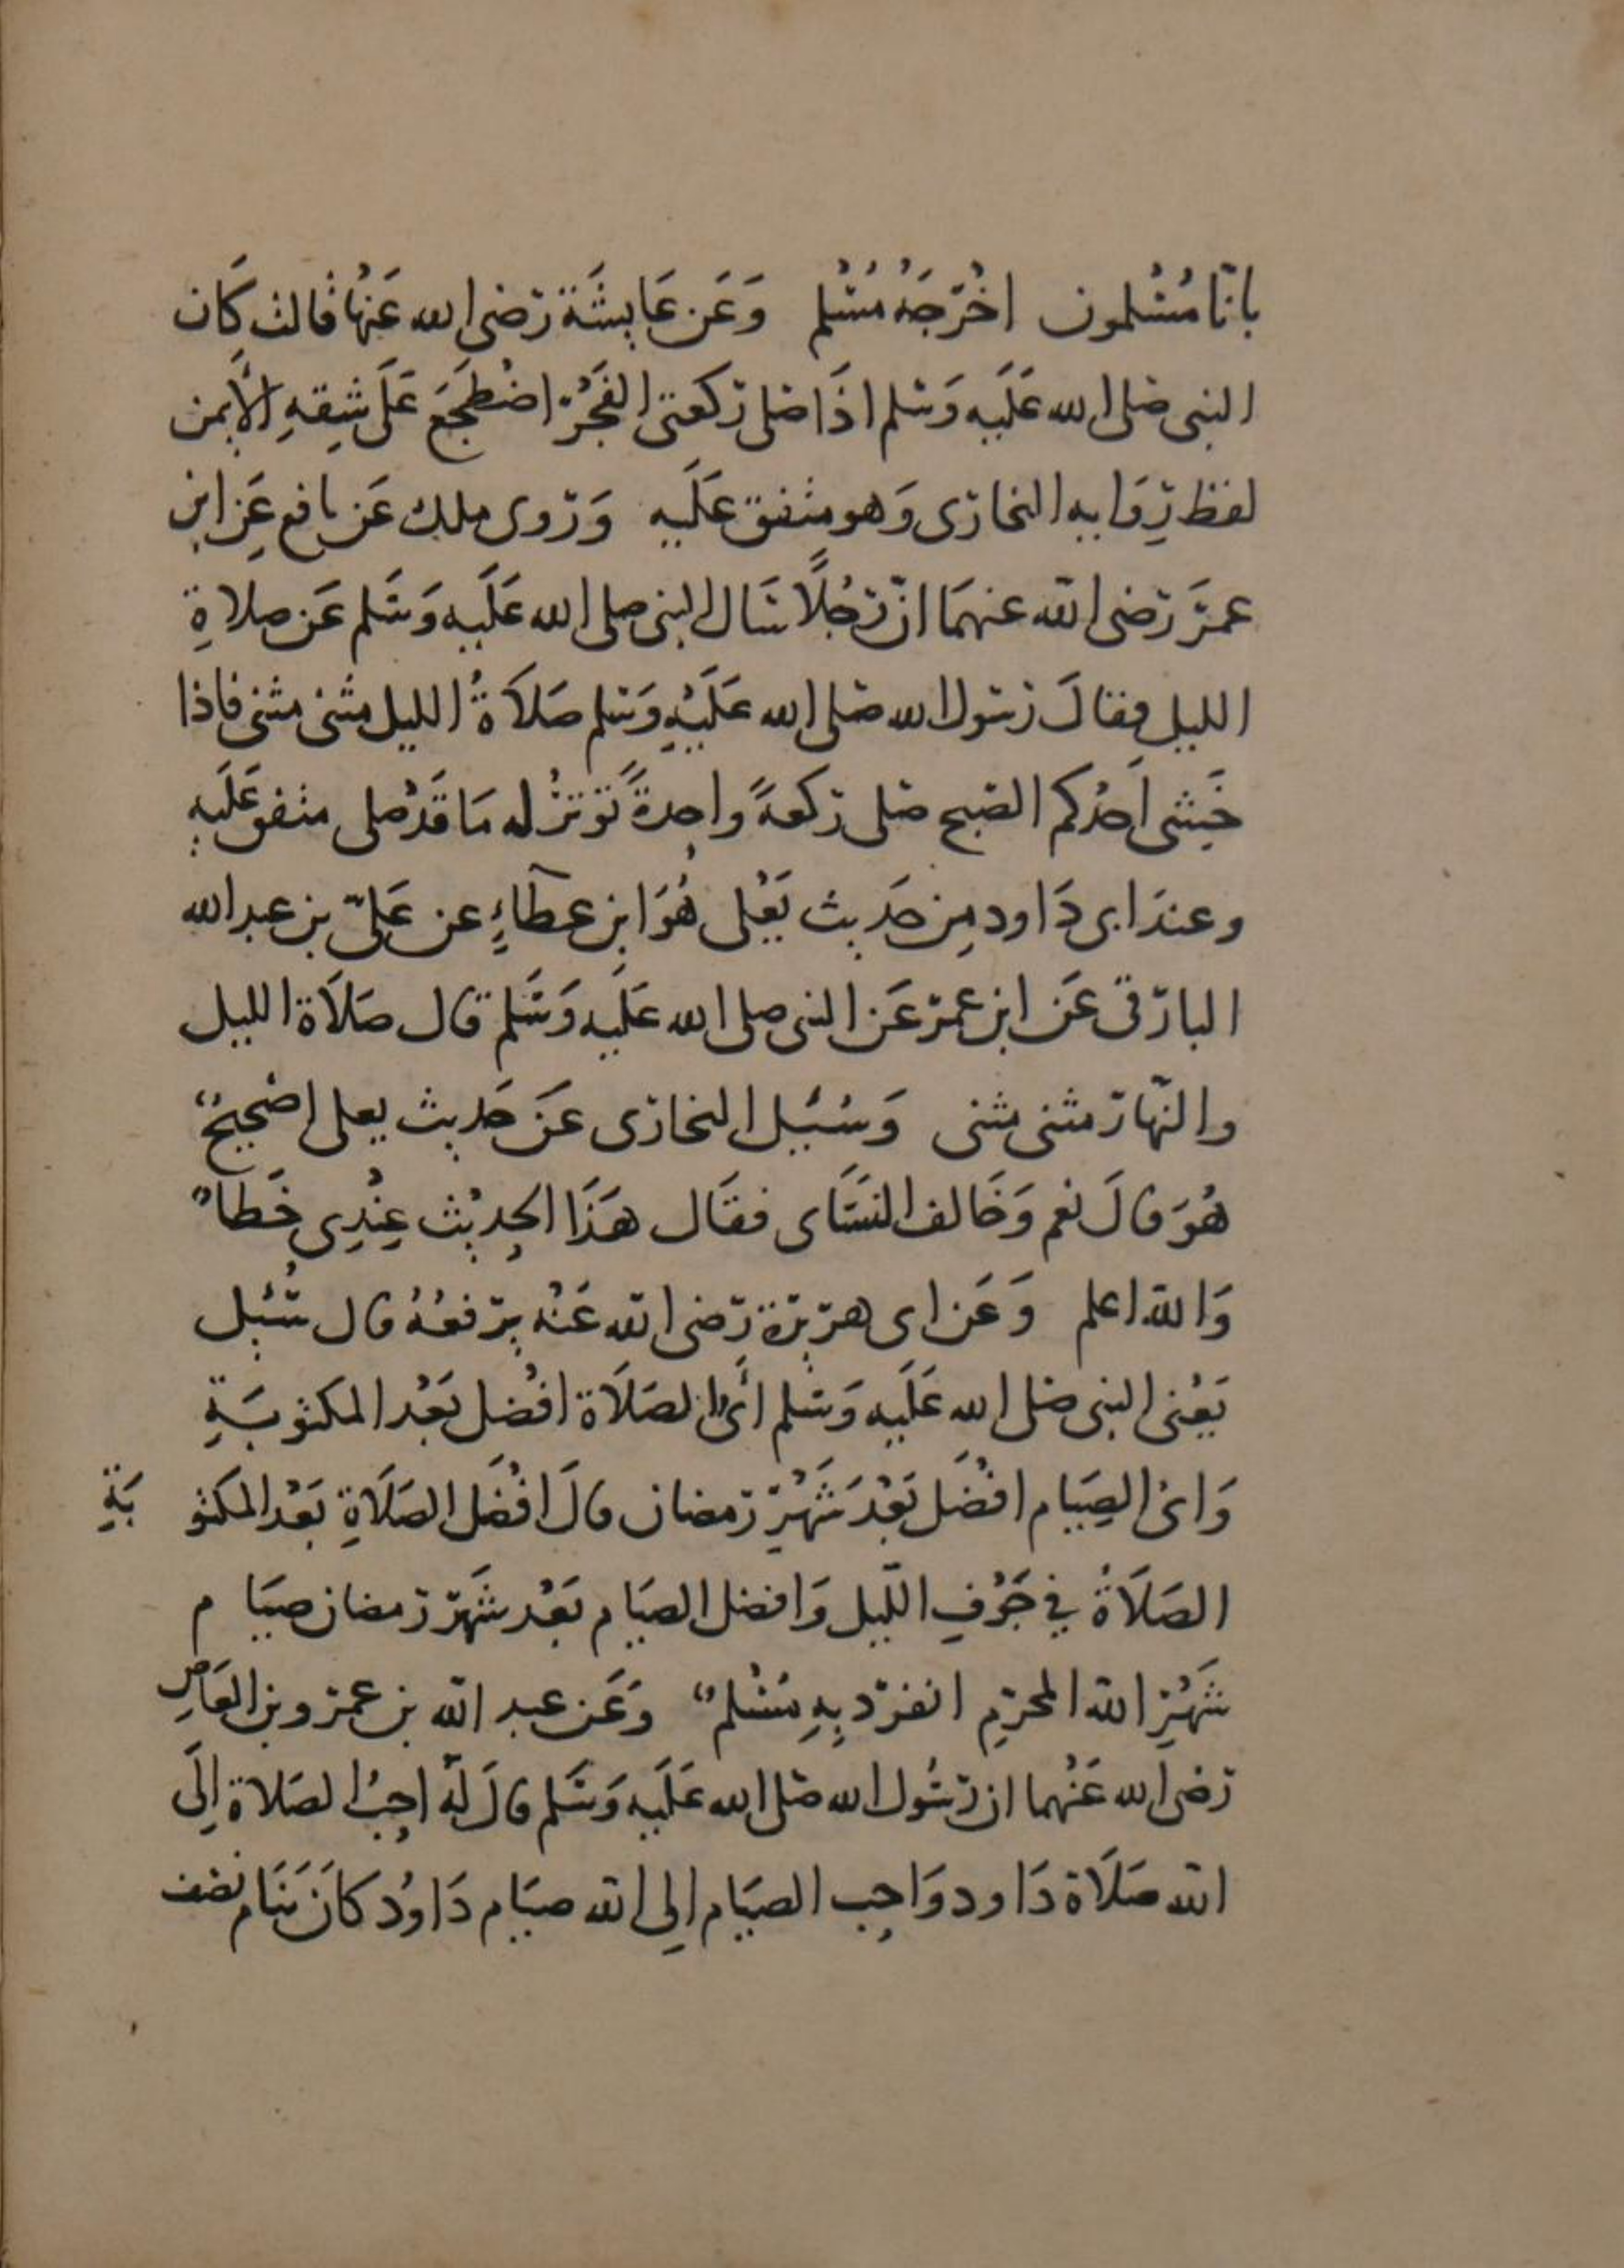 بانّا مُسْلمون اخْرَجَهُ مُسْلم وَعَن عَايشَة رَضى الله عَنهُا قالت كَان
النبى صَلى الله عَلَيه وَسَلم اذَا صَلى ركعتى الفَجْر اضْطجَعَ عَلَى شِقهِ الأَيمن
لفظ رِوَايه البخارى وَهو متفق عَلَيه وَرَوى ملك عَن نافع عَن ابن
عمرَ رَضى الله عنهمَا انّ رَجُلًا سَال النبى صلى الله عَلَيه وَسَلم عَن صلاةِ
الليل فقالَ رَسَول الله صَلى الله عَلَيْهِ وَسَلم صَلَاةُ الليل مثنى مثنى فاذا
خَشِى اَحَدُكم الصَبح صَلى ركعةً واحِدةً تُوترُ له مَا قَدْ صلى متفق عَلَيهِ
وعندَ ابى دَاود مِن حَديث يَعْلى هُوَ ابن عطآءٍ عن عَلىّ بن عبد الله
البارقى عَن ابن عمر عَن النبى صلى الله عَلَيه وَسَلم قال صَلَاة الليل
والنّهار مثنى مثنى وَسُئيل البخارى عَن حَديث يعلى اصَحيحٌ
هُوَ قالَ نعم وَخَالف النسَاى فقَال هَذَا الحِديْث عِنْدِى خَطاٌ
وَالله اعلم وَعَن اى هرَيرَة رَضى الله عَنْه يرَفعُهُ قال سُئيل
يَعْنى النبى صَلى الله عَلَيه وَسَلم أىُّ الصَلَاة افْضل بَعْد المكتوبَةِ
وَاىُ الصِيَام افْضَل بَعْدَ شَهْرِ رَمضان قالَ افْضَل الصَلَاةِ بَعْد المكتو بَةِ
الصَلَاةُ فى جَوْفِ اللّيل وَافضل الصيَام بَعْد شَهرَ رَمضان صيَام
شَهْرِ الله المحرَمِ انفرَد بِهِ مُسْلمٌ وَعَن عبد الله بن عمرو بن العَاصِ
رَضى الله عَنْهما ان رَسُول الله صَلى الله عَلَيه وَسَلم قالَ لَهُ احِبُ الصَلاة اِلَى
الله صَلَاة دَاود وَاحِب الصيَام اِلى الله صيَام دَاوُد كَانَ يَنَام نصْف